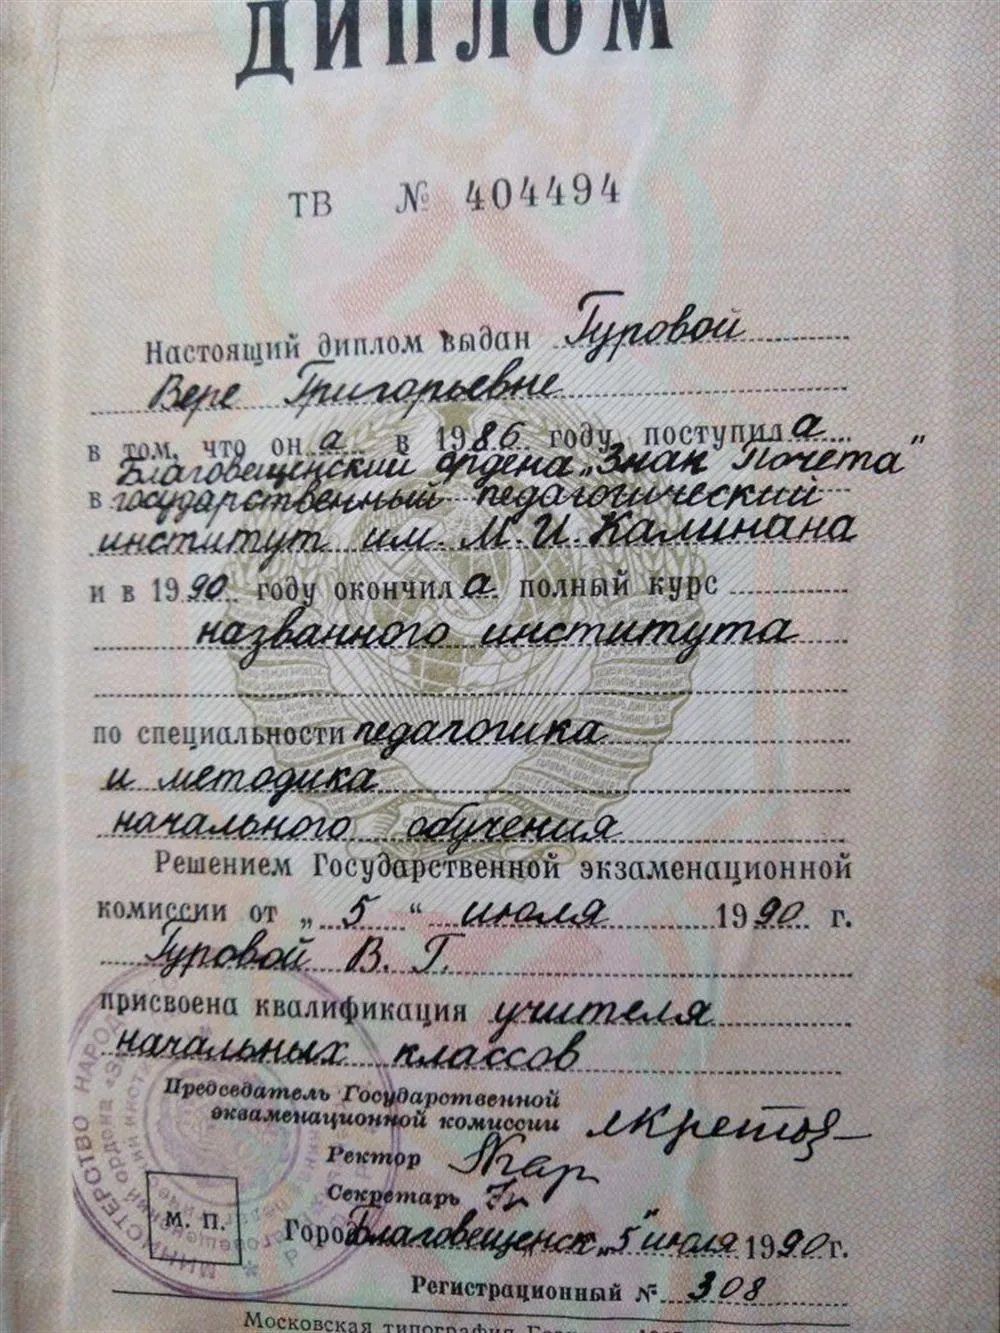 ДИПЛОМ
ТВ № 404494
Настоящий диплом выдан Гуровой
Вере Григорьевне
в том, что он а в 1986 году поступил а
Благовещенский ордена „Знак Почета"
в государственный педагогический
институт им. М. И. Калинана
и в 1990 году окончил а полный курс
названного института
по специальности педагогика
и методика
начального обучения
Решением Государственной экзаменационной
комиссии от „ 5 “ июля 1990 г.
Гуровой В. Г.
присвоена квалификация учителя
начальных классов
Председатель Государственной
экзаменационной комиссии
Ректор
Секретарь
М. П.
Город Благовещенск „5" июля 1990 г.
Регистрационный № 308
Московская типография
МИНИСТЕРСТВО НАРОД